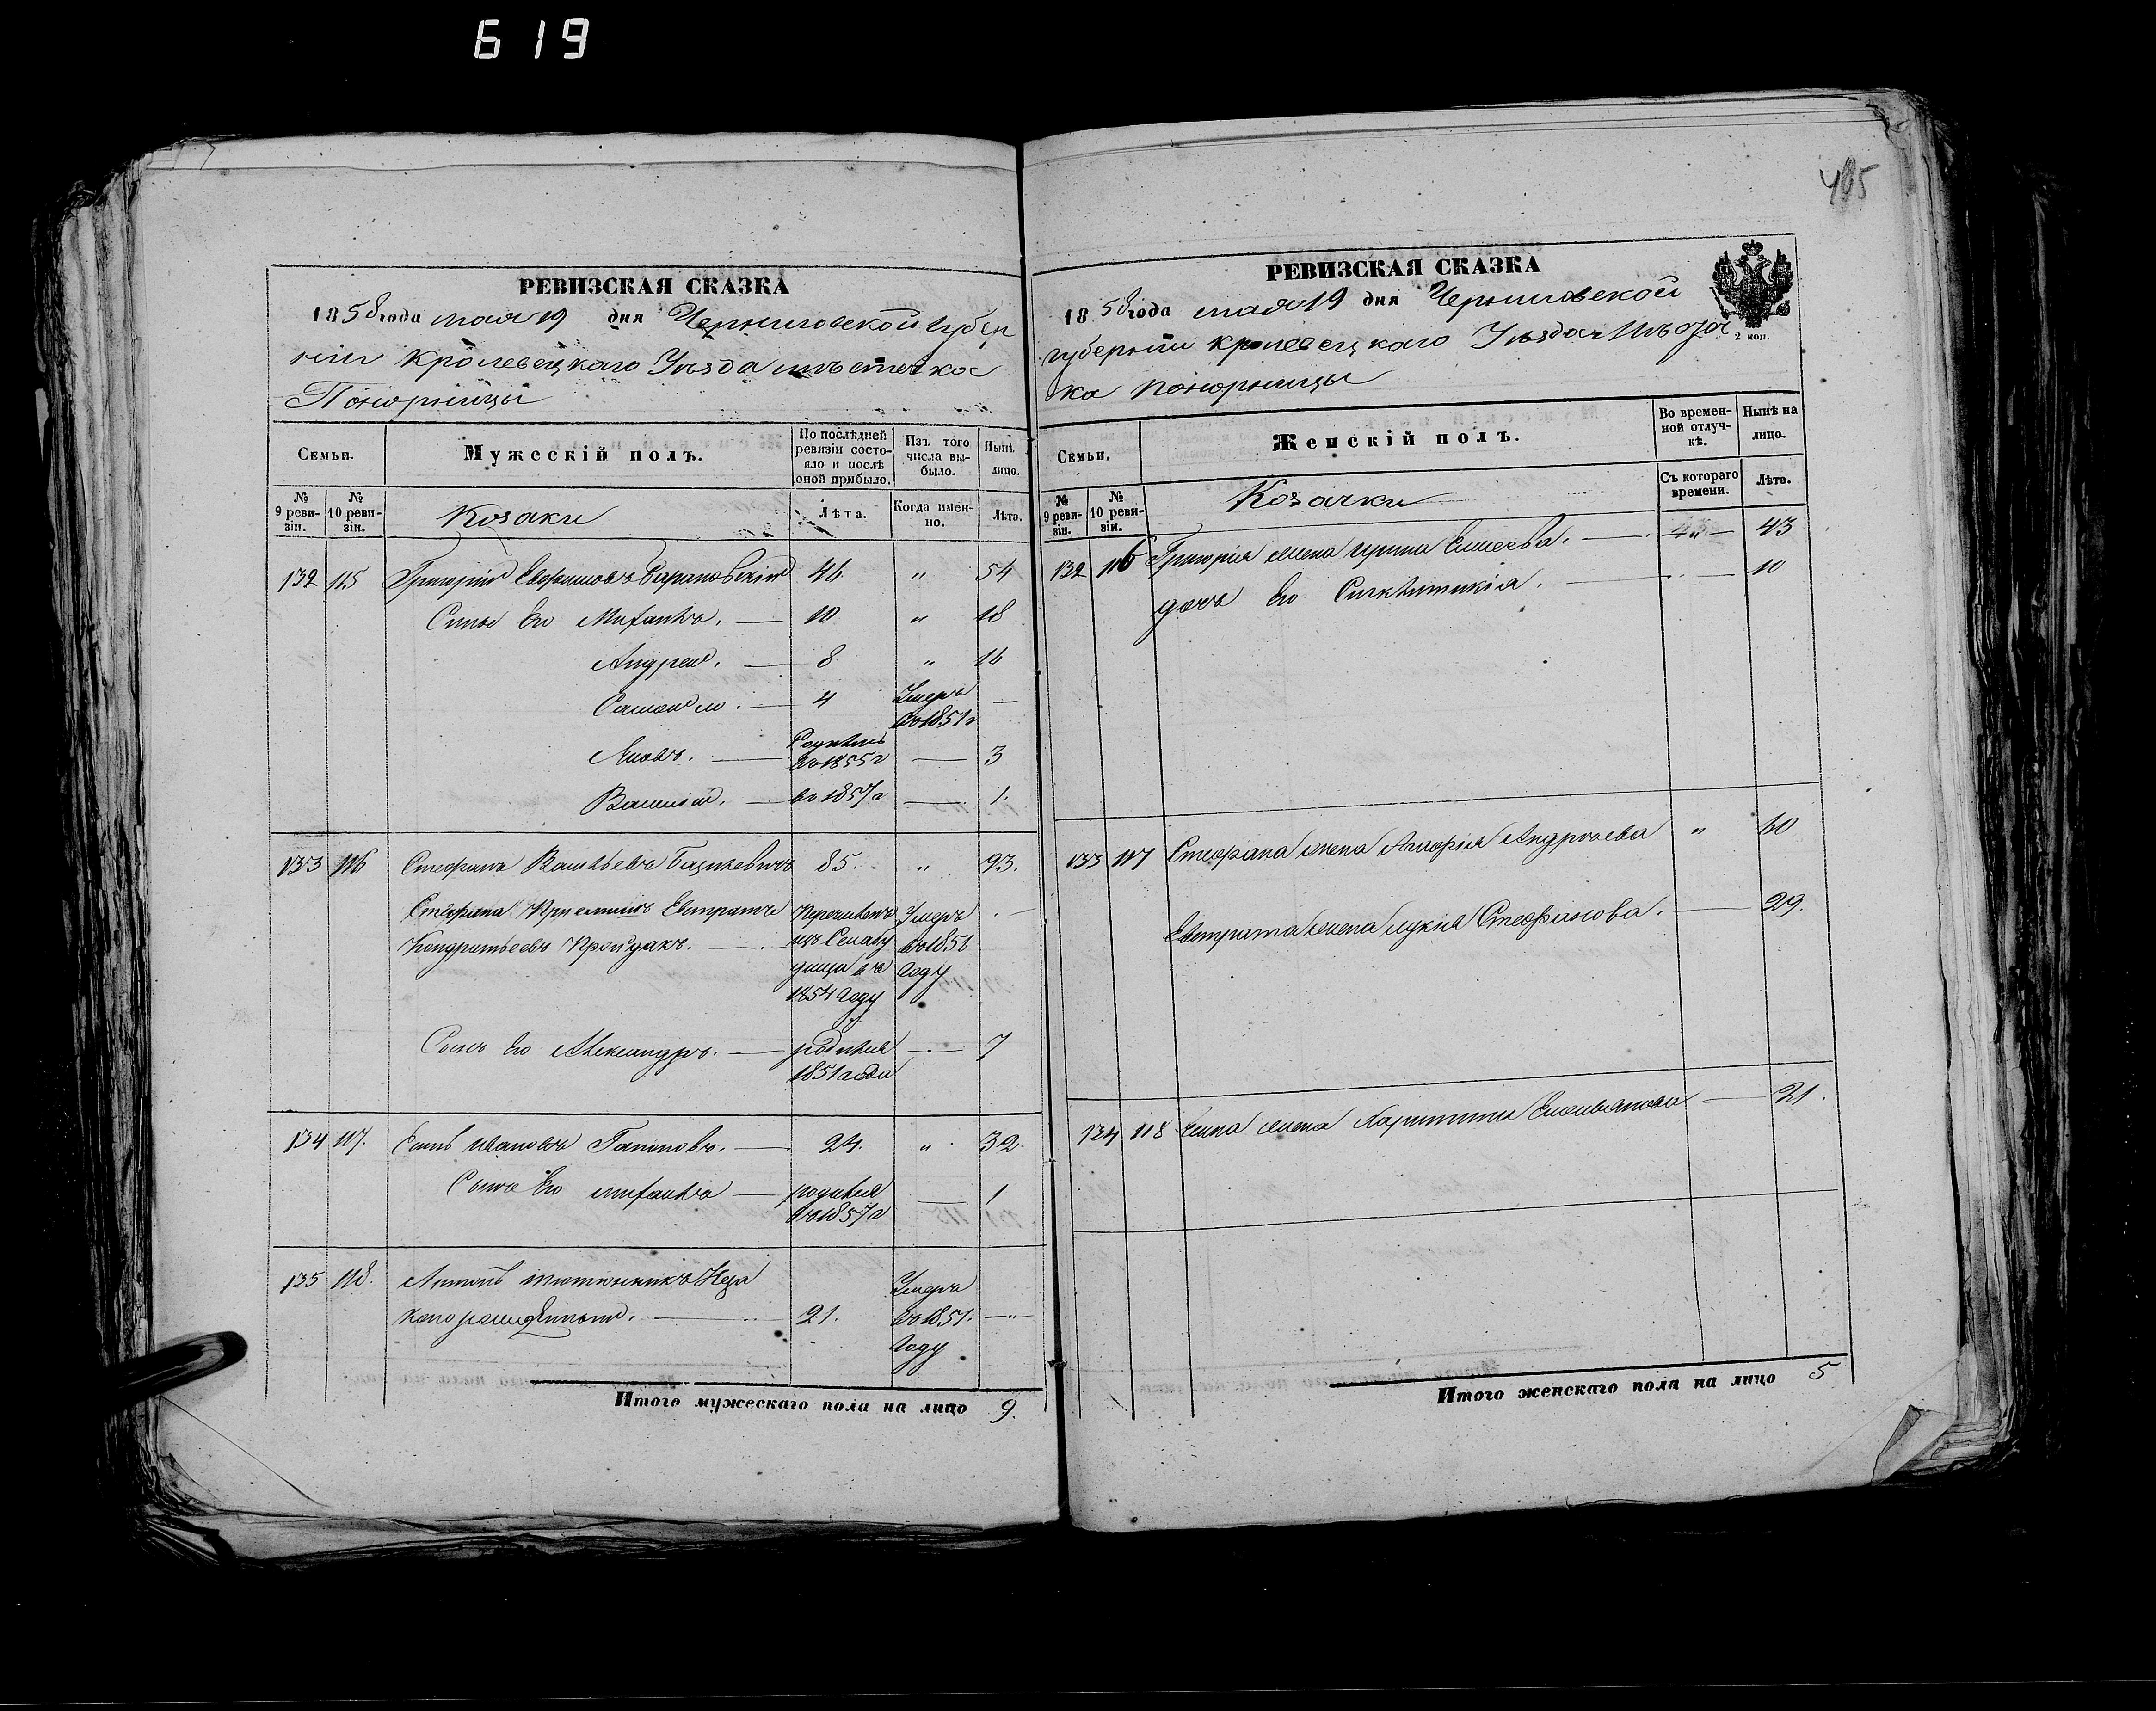 619
405
РЕВИЗСКАЯ СКАЗКА
1858 года мая 19 дня Черниговской губер
ніи Кролевецкаго Уѣзда мѣстечка
Понорницы
Семьи.
Мужескій полъ.
По послѣдней ревизіи состояло и послѣ оной прибыло.
Изъ того числа выбыло.
Нынѣ на лицо.
№ 9 ревизіи.
№ 10 ревизіи.
Козаки
Лѣта.
Когда именно.
Лѣта.
132 115 Григорій Евфимовъ Барановскій 46 " 54
Сыны Его Михаилъ. — 10 " 18
Андрей. — 8 " 16
Самойло. — 4 Умеръ въ 1851 г —
Яковъ. — Родился въ 1855 г — 3
Василій. — въ 1857 г — 1.
133 116 Стефанъ Васильевъ 85 " 93.
Стефана Пріемышъ Евстратъ
Кондратьевъ
Перечисленъ изъ 1854 году
Умеръ въ 1856 году
Сынъ Его Александръ. — родился 1851 года — 7
134 117. Иванов Гапоновъ. — 24. " 32
Сынъ Его Михаилъ — родился въ 1857 г — 1
135 118. Антонъ Тютюнникъ
21. Умеръ въ 1851. году —
Итого мужескаго пола на лицо 9.
РЕВИЗСКАЯ СКАЗКА
1858 года мая 19 дня Черниговской
губерніи Кролевецкаго Уѣзда Мѣстеч
ка Понорницы
2 коп.
Семьи.
Женскій полъ.
Во временной отлучкѣ.
Нынѣ на лицо.
№ 9 ревизіи.
№ 10 ревизіи.
Козачки
Съ котораго времени.
Лѣта.
132 116 Григорія жена Ирина Елисеева. — 43
дочь Его Синклитикія. — 10
133 117 Стефана жена Агафія Андреева " 60
Евстрата жена Лукія Стефанова. — 29.
134 118 жена Харитина Емельянова — 21.
Итого женскаго пола на лицо 5